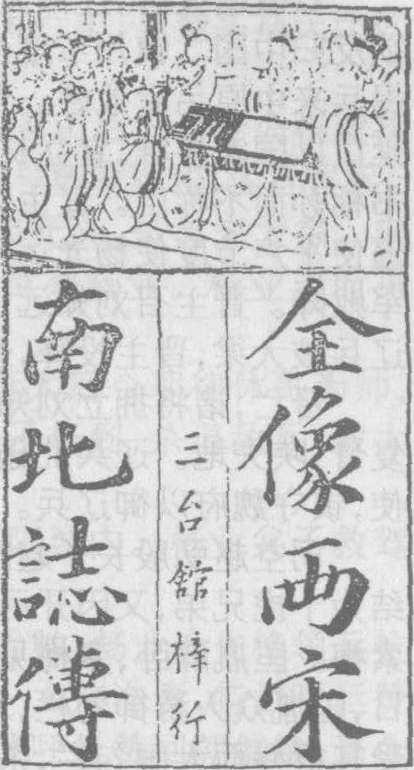 全像两宋
三台館梓行
南北誌傳